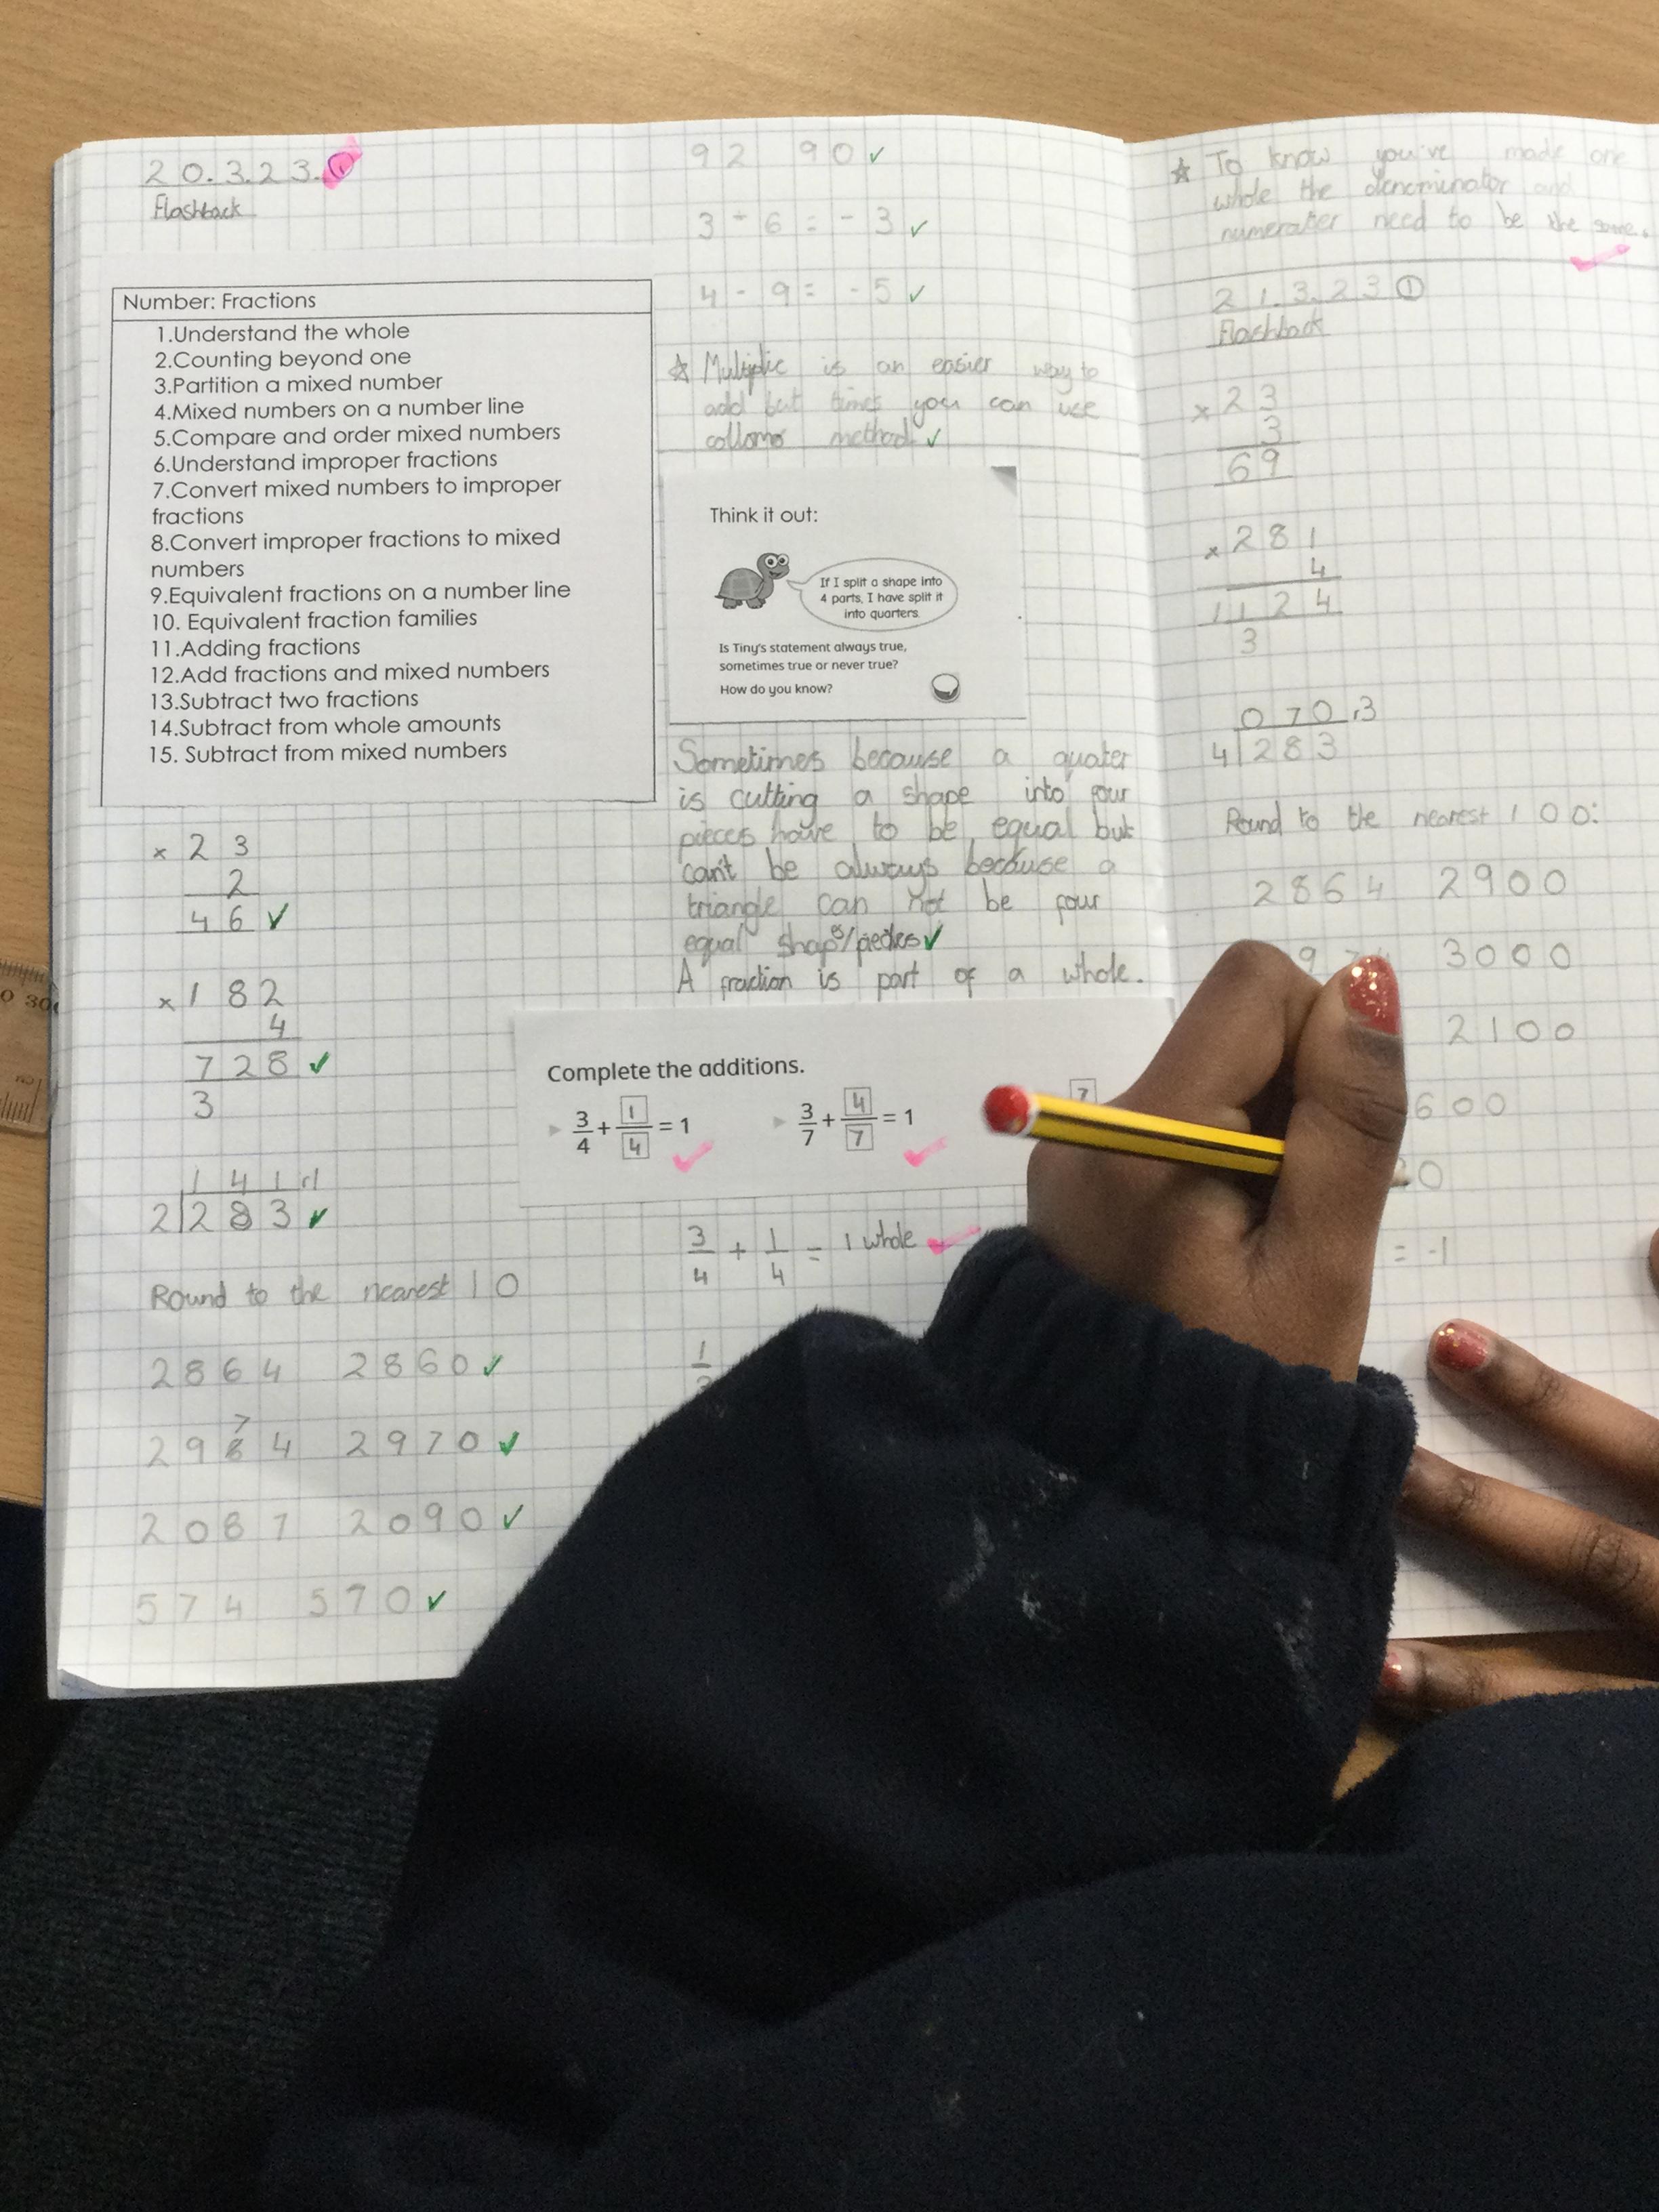 20.3.23.①
Flashback
Number: Fractions
1.Understand the whole
2.Counting beyond one
3.Partition a mixed number
4.Mixed numbers on a number line
5.Compare and order mixed numbers
6.Understand improper fractions
7.Convert mixed numbers to improper
fractions
8.Convert improper fractions to mixed
numbers
9.Equivalent fractions on a number line
10. Equivalent fraction families
11.Adding fractions
12.Add fractions and mixed numbers
13.Subtract two fractions
14.Subtract from whole amounts
15. Subtract from mixed numbers
× 23
2
46 ✓
× 182
4
728 ✓
3
141r1
2 283 ✓
Round to the nearest 10
2864 2860 ✓
7
2984 2970 ✓
2087 2090 ✓
574 570 ✓
92 90 ✓
3 - 6 = -3 ✓
4 - 9 = -5 ✓
☆ Multiplic is an easier way to
add but times you can use
method ✓
Think it out:
If I split a shape into
4 parts, I have split it
into quarters.
Is Tiny's statement always true,
sometimes true or never true?
How do you know?
Sometimes because a quater
is cutting a shape into four
pieces have to be equal but
can't be always because a
triangle can not be four
equal shapes/pieces ✓
A fraction is part of a whole.
Complete the additions.
3/4 + 1/4 = 1 ✓
3/7 + 4/7 = 1 ✓
7
3/4 + 1/4 = 1 whole ✓
1
☆ To know you've made one
whole the denominator and
numerater need to be the same. ✓
21.3.23 ①
Flashback
× 23
3
69
× 281
4
1124
3
070.r3
4 283
Round to the nearest 100:
2864 2900
3000
2100
600
= -1